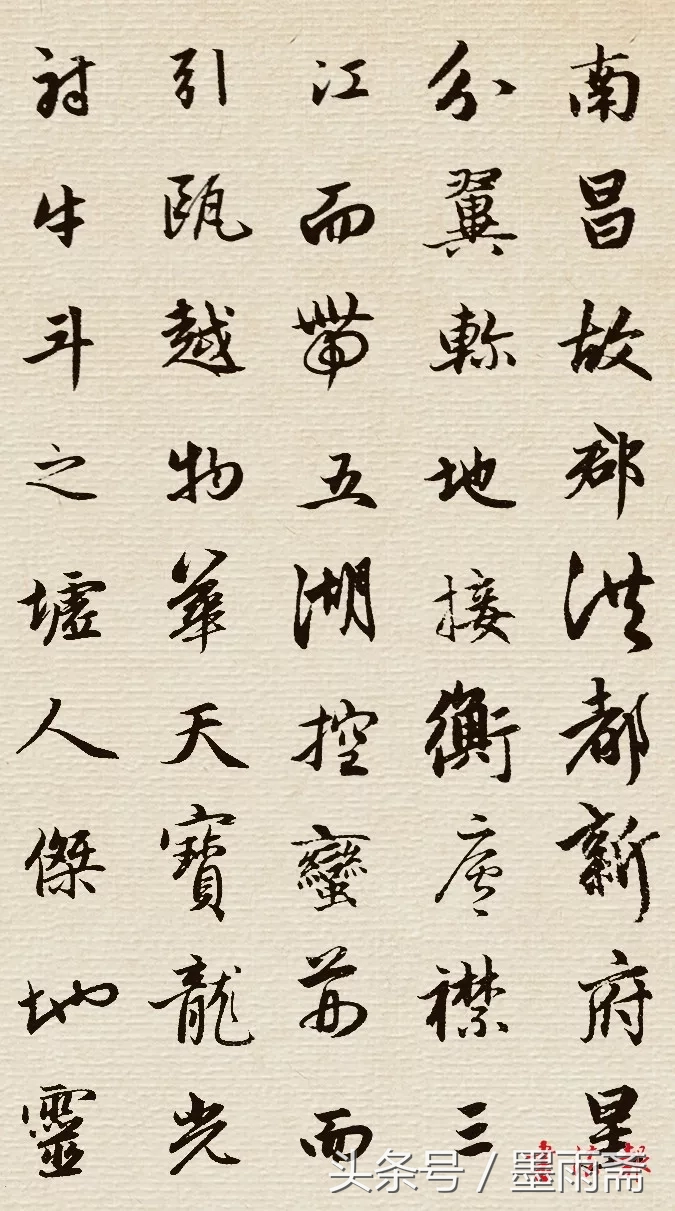 南昌故郡洪都新府星
分翼軫地接衡廬襟三
江而帶五湖控蠻荊而
引甌越物華天寶龍光
射牛斗之墟人傑地靈
头条号 / 墨雨斋